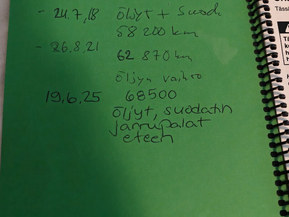 - 24.7.18 öljyt + suod.
58 200 km
- 26.8.21 62 870 km
öljyn vaihto
19.6.25 68500
öljyt, suodatin
jarrupalat
eteen